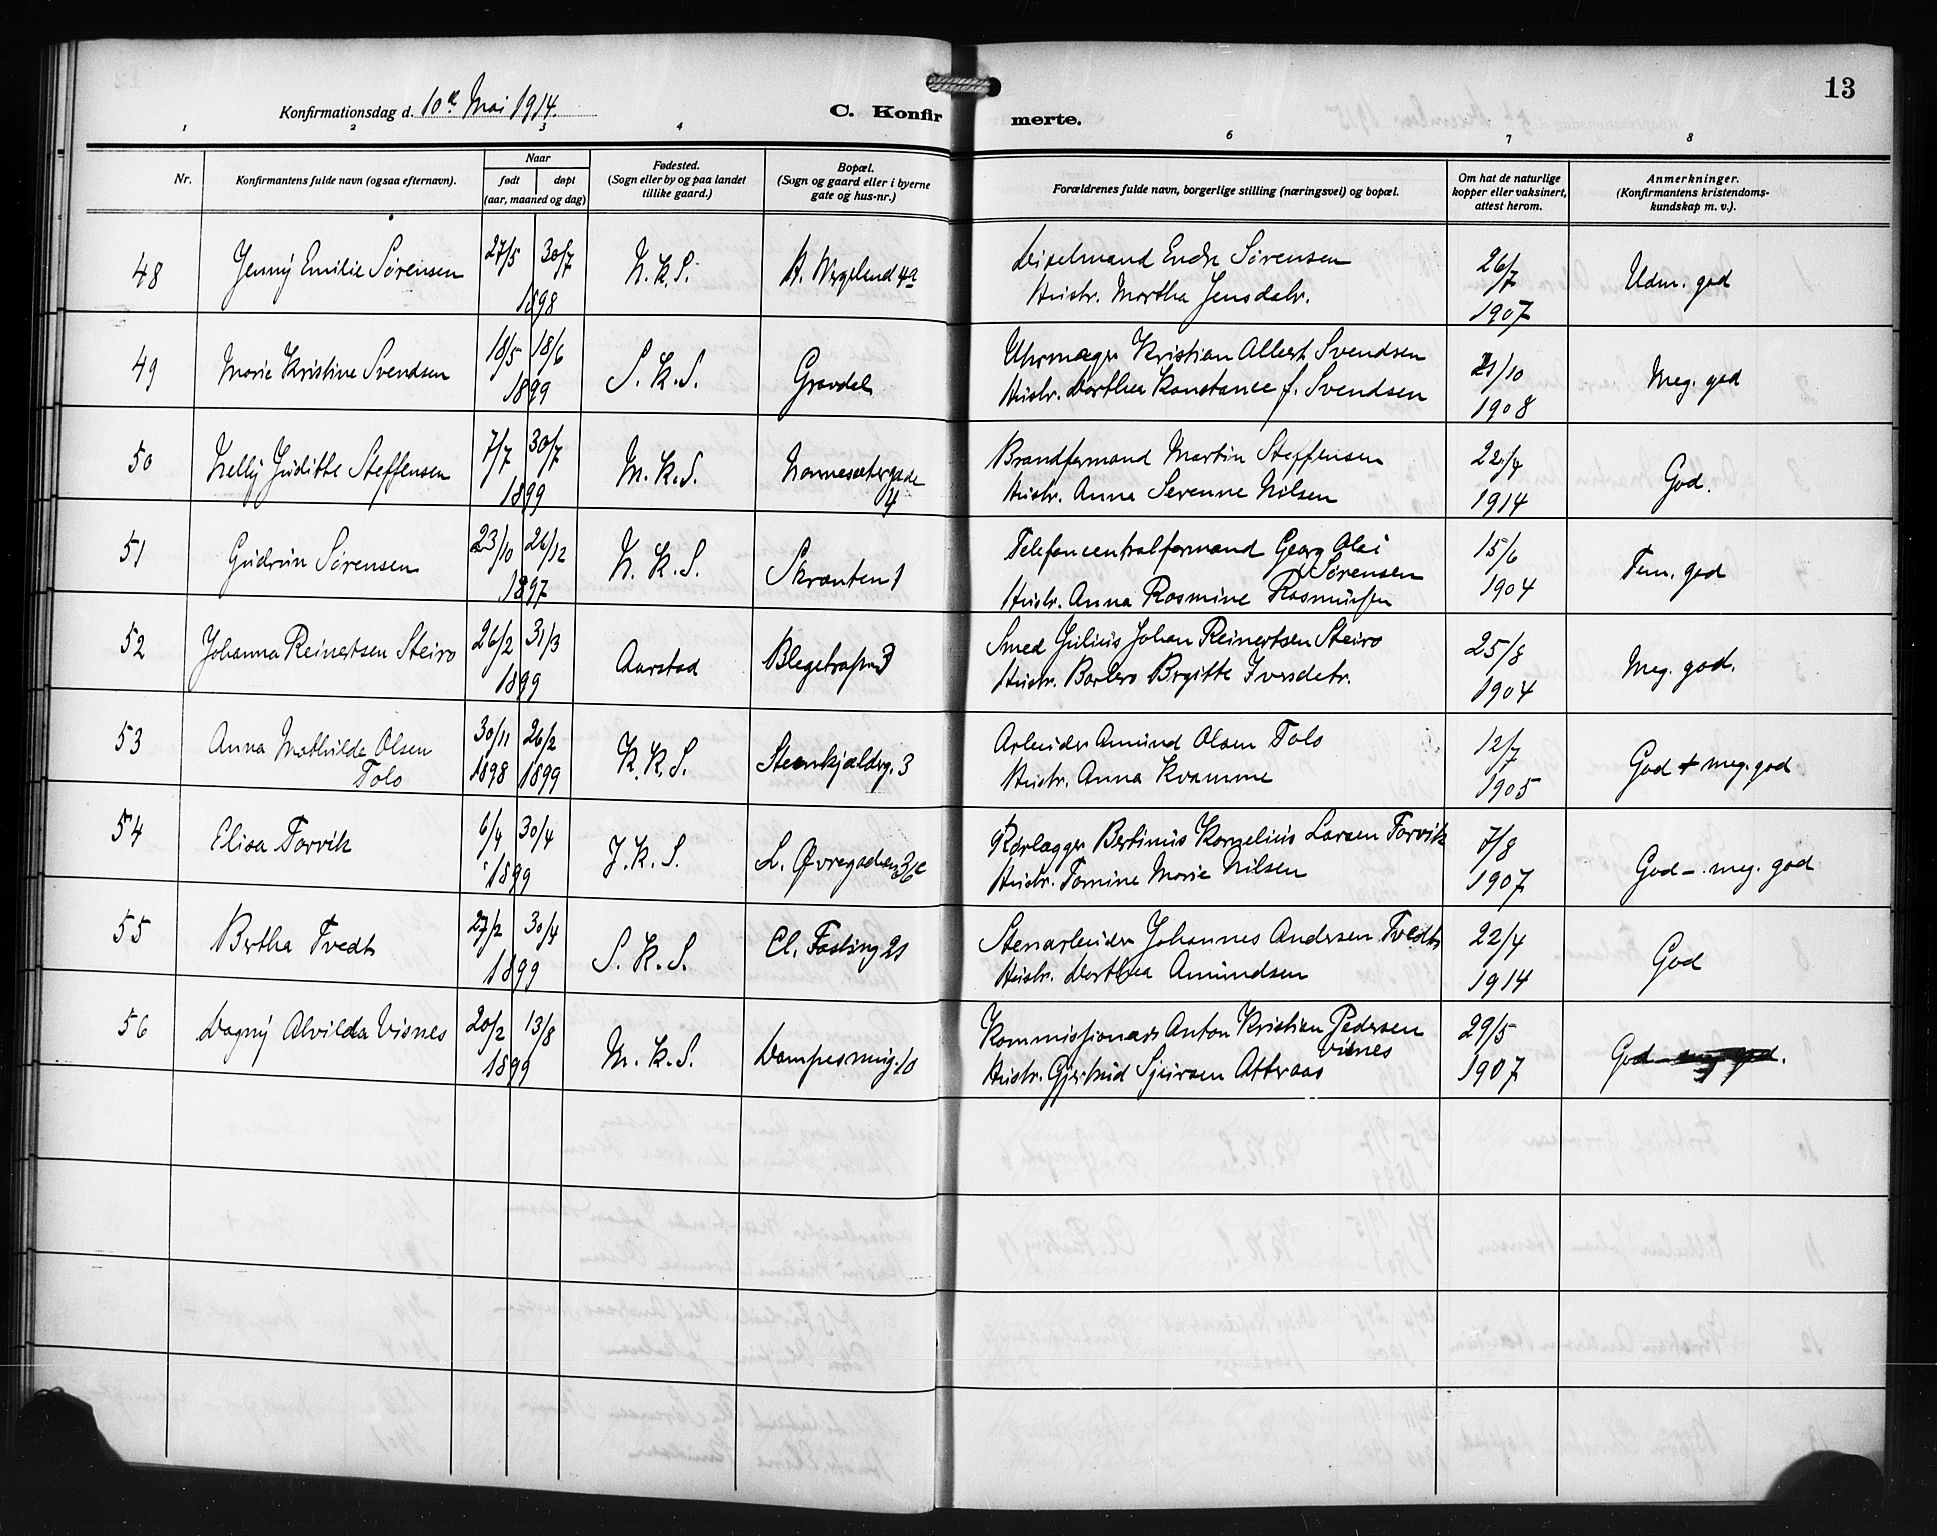 13
Konfirmationsdag d. 10de Mai 1914.
C. Konfirmerte.
1 2 3 4 6 7 8
Nr.
Konfirmantens fulde navn (ogsaa efternavn).
Naar
født døpt
(aar, maaned og dag)
Fødested.
(Sogn eller by og paa landet
tillike gaard.)
Bopæl.
(Sogn og gaard eller i byerne
gate og hus-nr.)
Forældrenes fulde navn, borgerlige stilling (næringsvei) og bopæl.
Om hat de naturlige
kopper eller vaksinert,
attest herom.
Anmerkninger.
(Konfirmantens kristendoms-
kundskap m. v.).
48 Jenny Emilie Sørensen 27/5 30/7 1898 N. K. S. H. Wergeland 4a
Endre Sørensen
Hustr. Martha Jensdatr.
26/7
1907
Udm. god
49 Marie Kristine Svendsen 18/5 18/6 1899 S. K. S. Gravdal
Uhrmager Kristian Albert Svendsen
Hustr. Dorthea Konstance f. Svendsen
21/10
1908
Meg. god
50 Nelly Juditte Steffensen 7/7 30/7 1899 M. K. S. Nonnesætergade 4
Brandformand Martin Steffensen
Hustr. Anna Serenne Nilsen
22/4
1914
God.
51 Gudrun Sørensen 23/10 26/12 1897 N. K. S. Skranten 1
Telefoncentralformand Georg Olai
Sørensen
Hustr. Anna Rasmine Rasmussen
15/6
1904
Tem. god
52 Johanna Reinertsen Steiro 26/2 31/3 1899 Aarstad 3
Smed Julius Johan Reinertsen Steiro
Hustr. Barbro Birgitte Iversdatr.
25/8
1904
Meg. god.
53 Anna Mathilde Olsen
Tolo
30/11 26/2
1898 1899
K. K. S. Stenkjældrg. 3
Arbeider Amund Olsen Tolo
Hustr. Anna Kvamme
12/7
1905
God + meg. god
54 Elisa Torvik 6/4 30/4 1899 J. K. S. L. Øvregaden 36c
Rørlægger Bertinius Kornelius Larsen Torvik
Hustr. Tomine Marie Nilsen
7/8
1907
God - meg. god
55 Bertha Tvedt 27/2 30/4 1899 S. K. S. Cl. Fasting 21
Stenarbeider Johannes Andersen Tvedt
Hustr. Dorthea Amundsen
22/4
1914
God
56 Dagny Alvilda Visnes 20/2 13/8 1899 M. K. S. Dampesmug. 10
Kommissionær Anton Kristian Pedersen
Visnes
Hustr. Gjertrud Sjursen Atteraas
29/5
1907
God - meg. god.